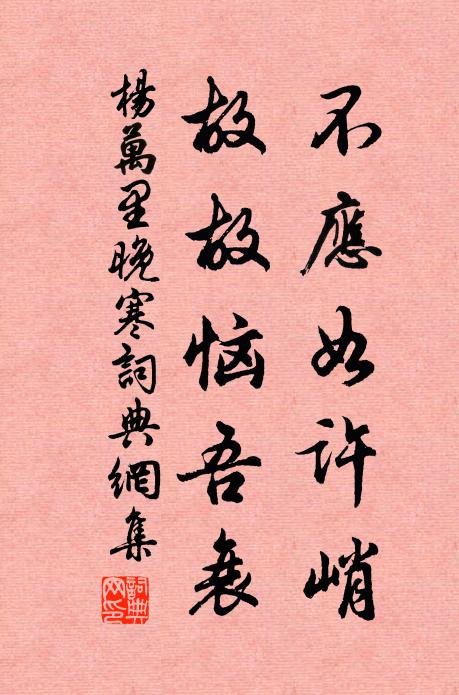 不應如許峭
故故恼吾衰
楊萬里晚寒詞典網集
詞典网印